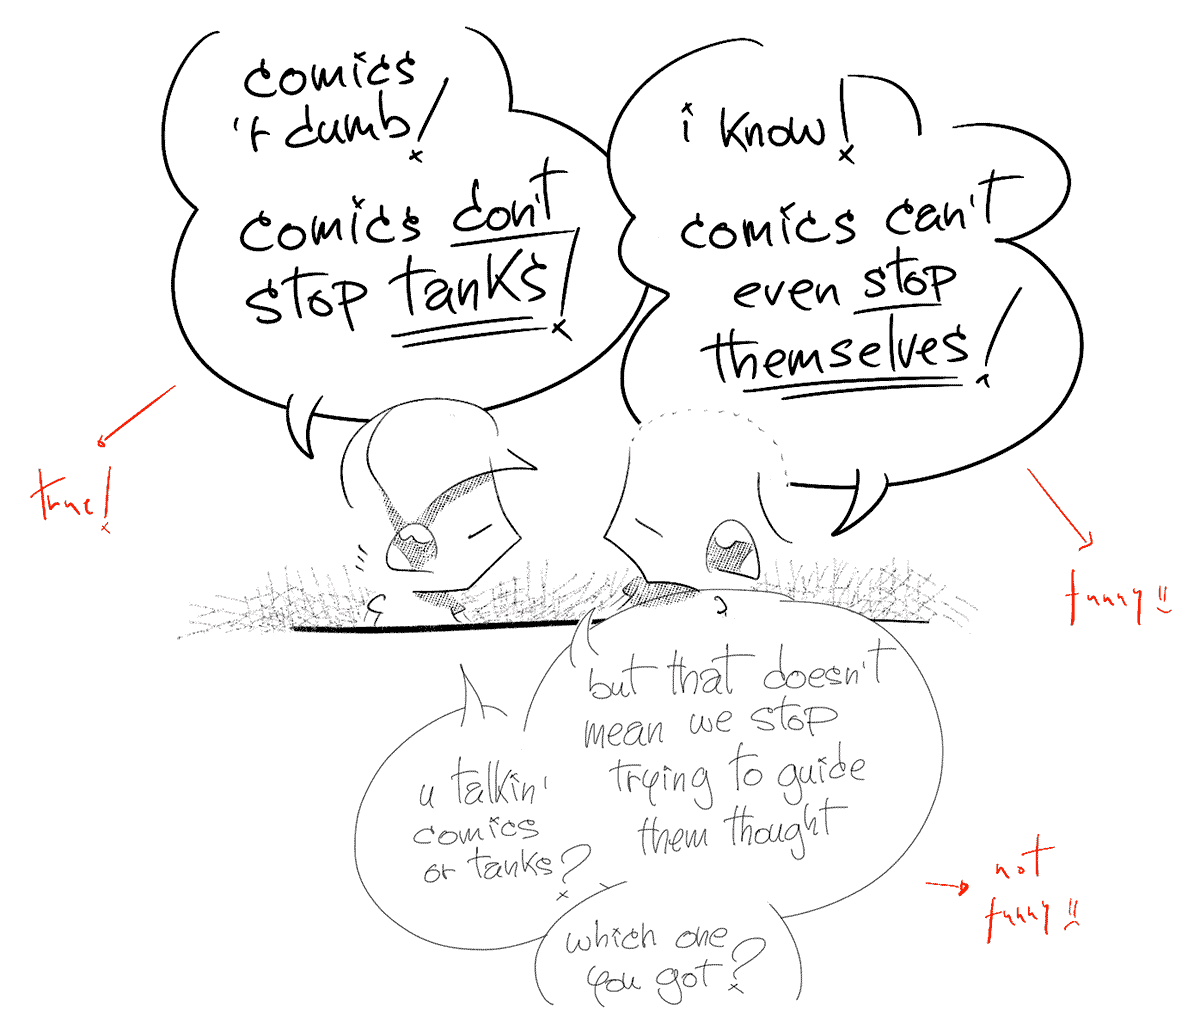 comics
'r dumb!
comics don't
stop tanks!
i know!
comics can't
even stop
themselves!
true!
funny!!
but that doesn't
mean we stop
trying to guide
them thought
u talkin'
comics
or tanks?
which one
you got?
not
funny!!